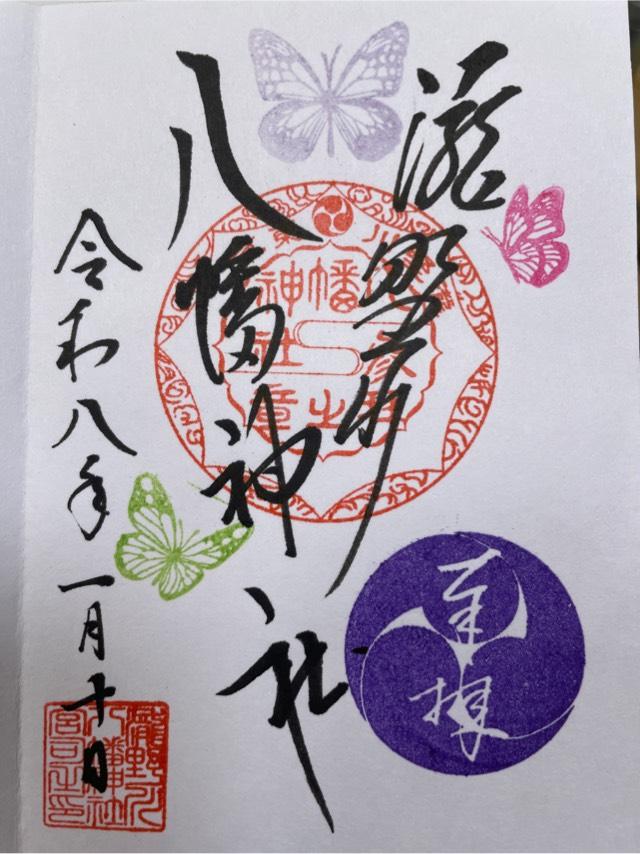 奉拝
瀧野川
八幡神社
令和八年一月十日
瀧野川
八幡神社
宮司之印